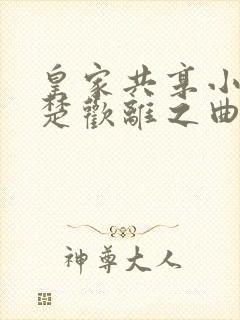 皇家共享小
楚歡離之曲
神尊大人